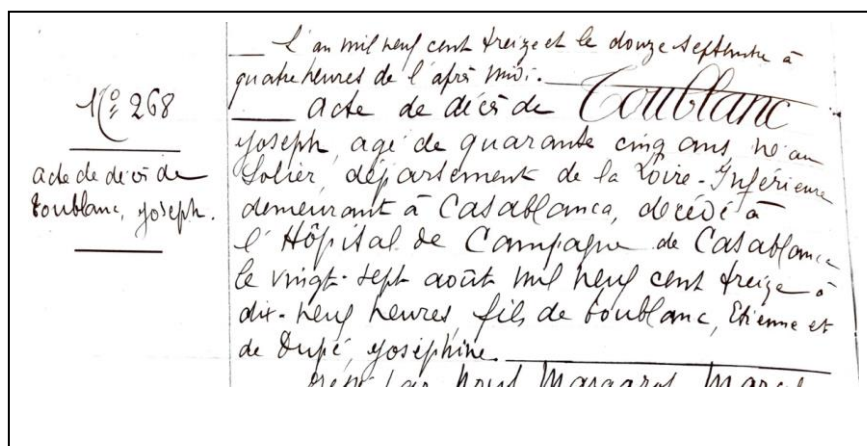 N° 268
acte de décès de
Toublanc, Joseph.
L'an mil neuf cent treize et le douze septembre à
quatre heures de l'après midi.
acte de décès de Toublanc
Joseph, agé de quarante cinq ans, né au
Solier, département de la Loire-Inférieure
demeurant à Casablanca, décédé à
l'Hôpital de Campagne de Casablanca
le vingt-sept août mil neuf cent treize à
dix-neuf heures, fils de Toublanc, Etienne et
de Dupé, Joséphine.
par Nous Marcel